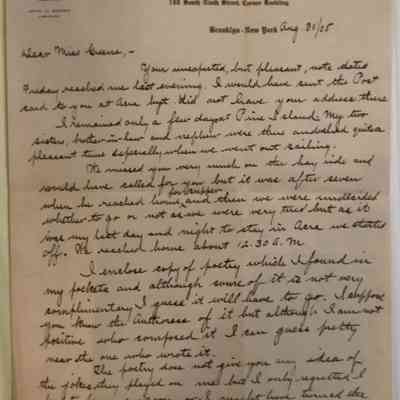 168 South Ninth Street, Corner Roebling
Brooklyn-New York Aug 31/08
Dear Miss Greene,-
Your unexpected, but pleasant, note dated
Friday reached me last evening. I would have sent the Post
card to you at Acra but did not have your address there
I remained only a few days at Pine Island. My two
sisters, brother-in-law and nephew were there and had quite a
pleasant time especially when we went out sailing.
We missed you very much on the hay ride and
would have called for you but it was after seven
for supper
when he reached home, and then we were undecided
whether to go or not as we were very tired but as it
was my last day and night to stay in Acra we started
off. We reached home about 12.30 A.M.
I enclose copy of poetry which I found in
my pockets and although some of it is not very
complimentary I guess it will have to go. I suppose
you know the Authoress of it but although I am not
positive who composed it I can guess pretty
near the one who wrote it.
The poetry does not give you any idea of
the jokes they played on me but I only regretted I
might have turned the